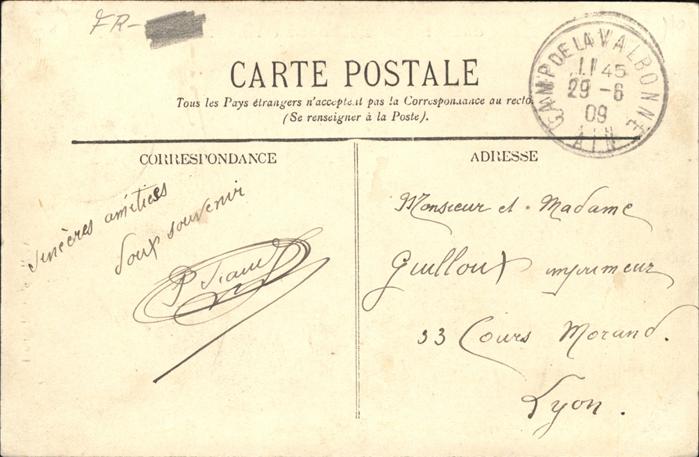 FR-
CARTE POSTALE
Tous les Pays étrangers n'acceptent pas la Correspondance au recto
(Se renseigner à la Poste).
CAMP DE LA VALBONNE
11 45
29 -6
09
AIN
CORRESPONDANCE
ADRESSE
Sincères amitiés
Doux souvenir
P
Monsieur et Madame
Guilloux imprimeur
33 Cours Morand.
Lyon.